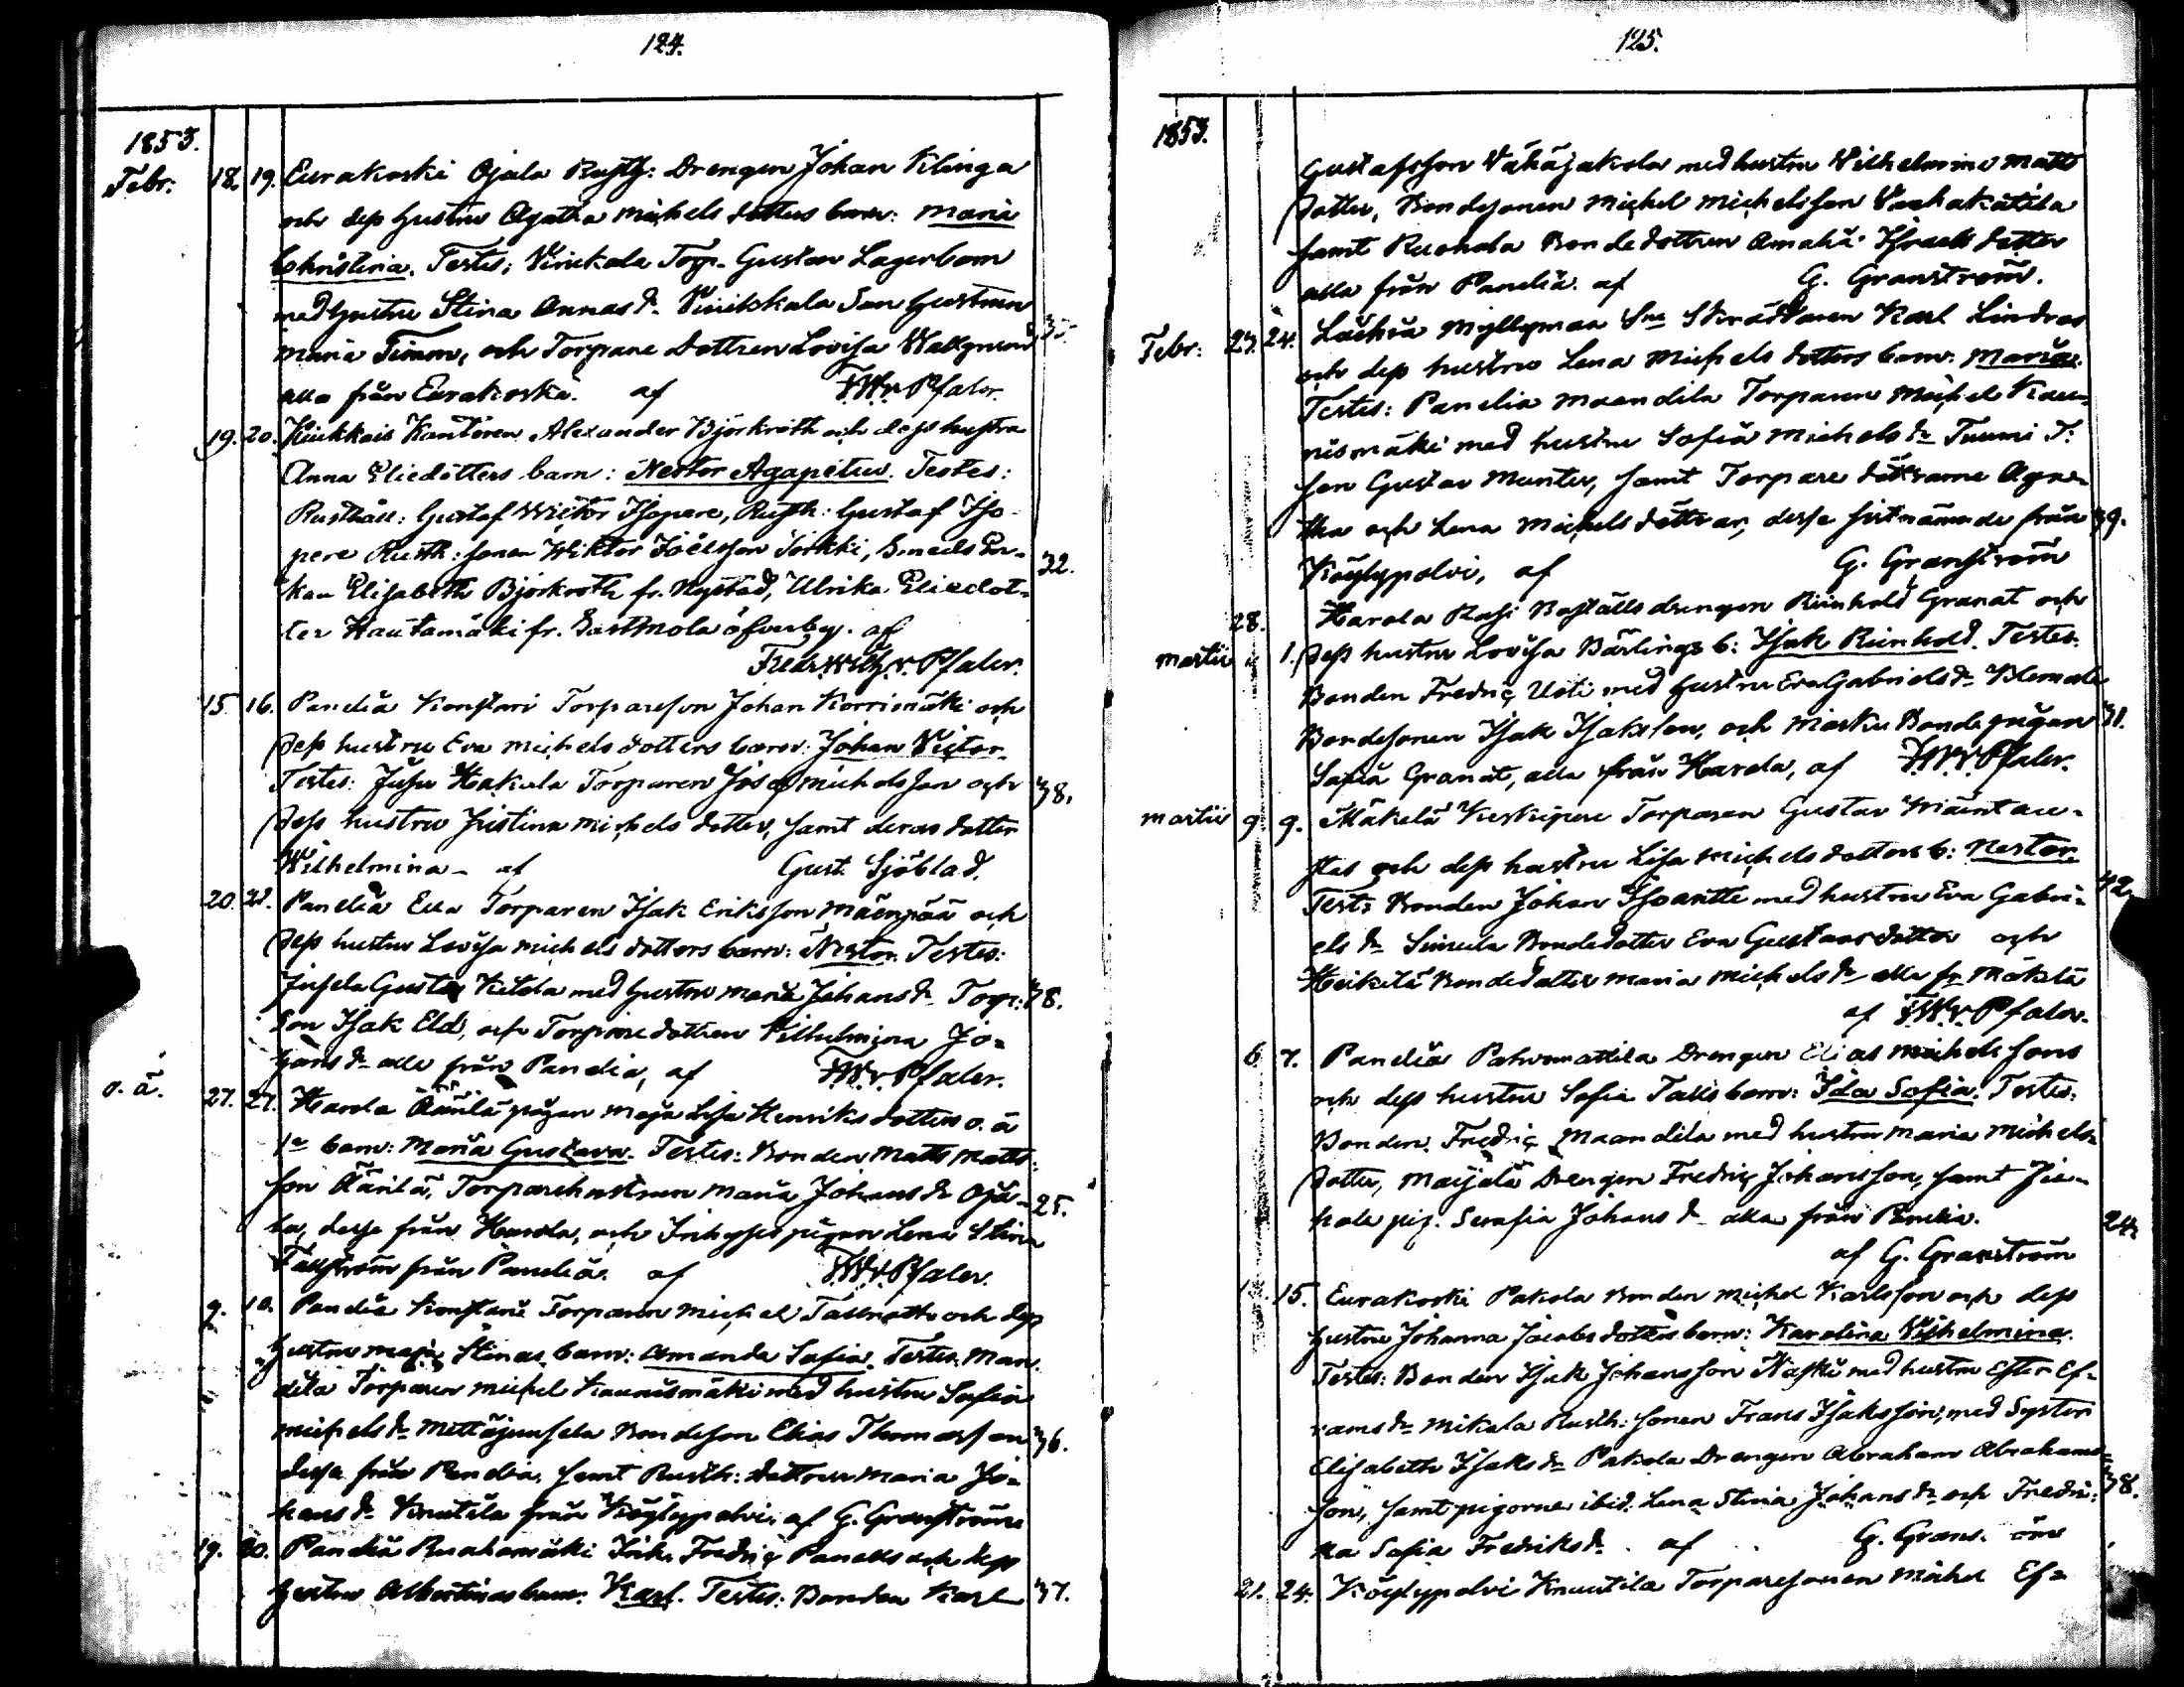 124.
1853.
Febr: 18. 19. Eurakoski Ojala Rusth: Drengen Johan Klinga
och dess hustru Agatha Michels dotters barn: Maria
Christina. Testes: Vinikala Torp. Gustav Lagerbom
med hustru Stina Annas dr. Vinikkala Son hustrun
Maria Timm, och Torpare Dottren Lovisa Wallgren 35.
alla från Eurakoski. af F.W.v. Pfaler.
19. 20. Kiukkais Kantoren Alexander Björkroth och dess hustru
Anna Eliedotters barn: Nestor Agapetus. Testes:
Rusthåll: Gustaf Wictor Isopere, Rusth: Gustaf Iso-
pere Rusth: sonen Wiktor Joelsson Jorkki, Smeds En-
kan Elisabeth Björkroth fr. Nystad, Ulrika Eliedot- 32.
ter Hautamäki fr. Sastmola öfverby. af
Fredr. Wilh. v. Pfaler.
15. 16. Panelia Konstari Torparesson Johan Korrimäki och
dess hustru Eva Michels dotters barn: Johan Victor.
Testes: Juhu Hakula Torparen Josef Michelsson och 38.
dess hustru Justina Michels dotter, samt deras dotter
Wilhelmina. af Gust. Sjöblad.
20. 21. Panelia Eila Torparen Isak Eriksson Mäenpää och
dess hustru Lovisa Michels dotters barn: Nestor. Testes:
Jusela Gustav Ketola med hustru Maria Johans dr. Torp: 28.
son Isak Eld, och Torpare dottren Vilhelmina Jo-
hans dr alla från Panelia, af F.W.v. Pfaler.
o. ä. 27. 27. Harola Äänilä pigan Maja Lisa Henriks dotters o. ä
1a barn: Maria Gustava. Testes: Bonden Matts Matts-
son Äänilä, Torparehustrun Maria Johans dr Oja- 25.
la, desse från Harola, och Inhyses pigan Lena Stina
Tallström från Panelia. af F.W.v. Pfaler.
9. 10. Panelia Konstari Torparen Michel Tallroth och dess
hustru Maja Stinas barn: Amanda Sofia. Testes. Man-
dila Torparen Michel Kaunismäki med hustru Sofia
Michels dr. Mettäjunsela Bondeson Elias Thomasson 36.
desse från Panelia, samt Rusth: dottren Maria Jo-
hans dr Knutila från Köylypolvi, af G. Granström
19. 20. Panelia Ruohomäki Inh. Fredric Panells och dess
hustru Albertinas barn: Karl. Testes: Bonden Karl 37.
125.
1853.
Gustafsson Vähäjakola med hustru Wilhelmina Matts
dotter, Bondesonen Michel Michelsson Vanhakätila
samt Ruohola Bonde dottren Amalia Israels dotter
alla från Panelia. af G. Granström.
Febr: 23. 24. Lachia Myllymaa Sne Skräddaren Karl Lindros
och dess hustru Lena Michels dotters barn: Maria.
Testes: Panelia Maandila Torparen Michel Kau-
nismäki med hustru Sofia Michels dr Tuumi T:
son Gustav Munter, samt Torpare döttrarne Agne-
tha och Lena Michels döttrar, desse sistnämnde från 39.
Köylypolvi, af G. Granström
28. Harola Rasi Boställsdrengen Reinhold Granat och
Martii 1. dess hustru Lovisa Bärlings b: Isak Reinhold. Testes:
Bonden Fredric Uoti med hustru Eva Gabriels dr Klemola
Bondesonen Isak Isaksson, och Markku Bondepigan 31.
Sofia Granat, alla från Harola, af F.W.v. Pfaler.
Martii 9. 9. Mäkelä Keskipere Torparen Gustav Mäintau-
stas och dess hustru Lisa Michels dotters b: Nestor.
Test: Bonden Johan Isoantti med hustru Eva Gabri- 42.
els dr Simula Bondedotter Eva Gustavsdotter och
Heikilä Bondedotter Maria Michels dr alla fr. Mäkelä
af F.W.v. Pfaler.
6. 7. Panelia Pahvomattila Drengen Elias Michelssons
och dess hustru Sofia Talls barn: Ida Sofia. Testes:
Bonden Fredric Maandila med hustru Maria Michels-
dotter, Maijala Drengen Fredric Johansson, samt
kola pig. Serafia Johans dr alla från Panelia. 24.
af G. Granström
15. Eurakoski Pakola Bonden Michel Karlsson och dess
hustru Johanna Jacobs dotters barn: Karolina Wilhelmina.
Testes: Bonden Isak Johansson Naski med hustru Ester Ef-
raims dr Mikola Rusth: sonen Frans Isaksson, med Syster
Elisabeth Isaks dr Pakola Drengen Abraham Abrahams-
son, samt pigorne ibid. Lena Stina Johans dr och Fredri- 38.
ka Sofia Fredriks dr. af G. Grans. öm
21. 24. Köylypolvi Knuutila Torparesonen Michel Ef-